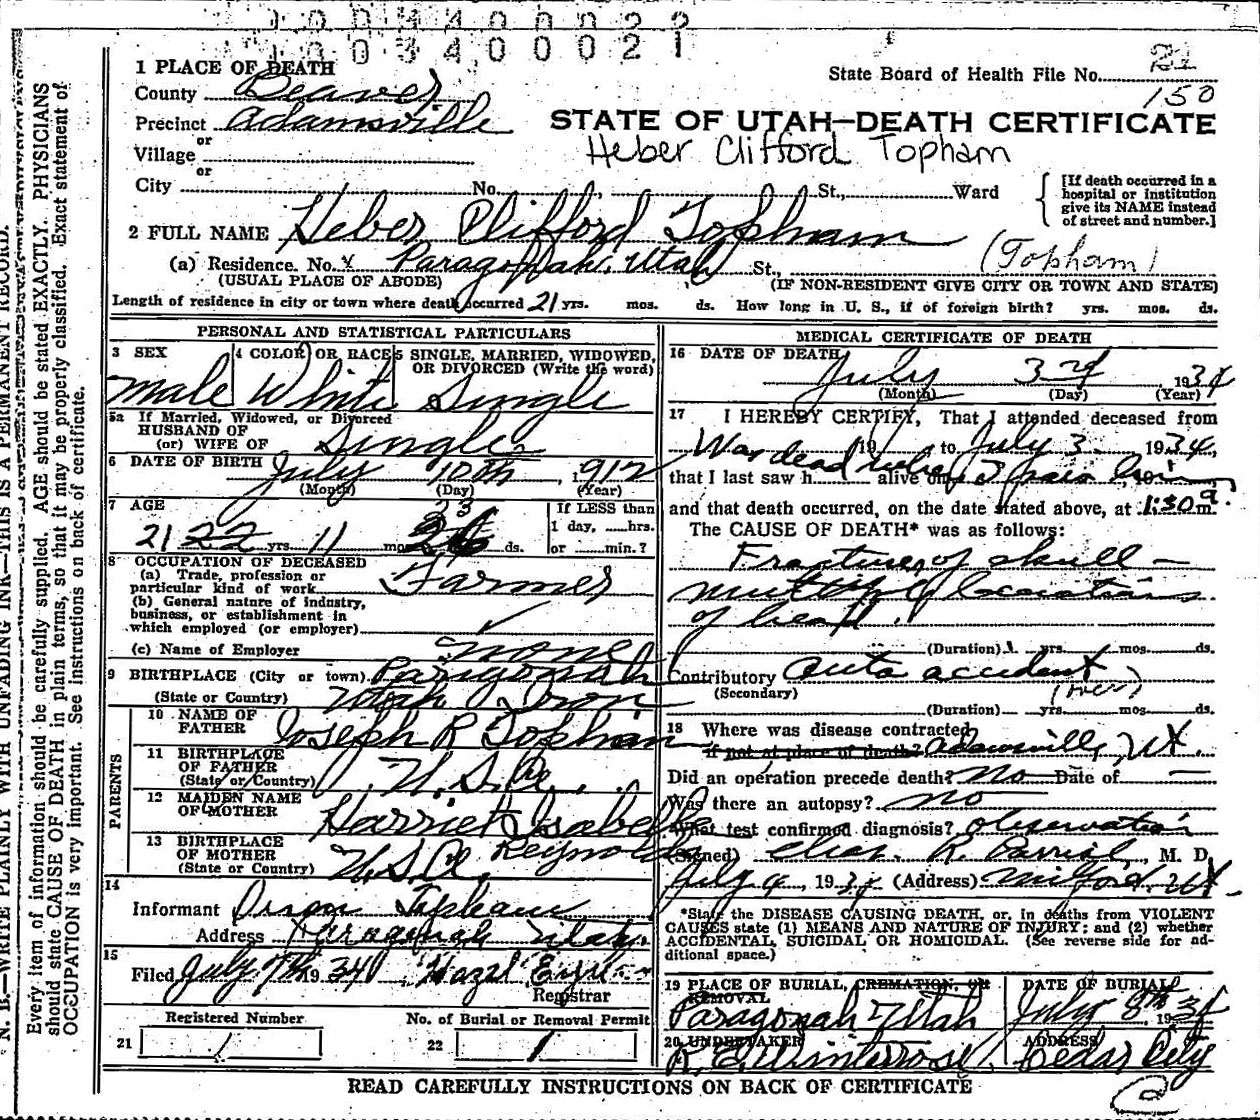 003400021
1 PLACE OF DEATH
County Beaver
State Board of Health File No. 21
150
Precinct Adamsville
STATE OF UTAH—DEATH CERTIFICATE
or
Village
Heber Clifford Topham
or
City No. St., Ward
[If death occurred in a hospital or institution give its NAME instead of street and number.]
2 FULL NAME Heber Clifford Topham
(Topham)
(a) Residence. No. x Paragonah, Utah St.,
(USUAL PLACE OF ABODE) (IF NON-RESIDENT GIVE CITY OR TOWN AND STATE)
Length of residence in city or town where death occurred 21 yrs. mos. ds. How long in U. S., if of foreign birth? yrs. mos. ds.
PERSONAL AND STATISTICAL PARTICULARS
3 SEX 4 COLOR OR RACE 5 SINGLE, MARRIED, WIDOWED, OR DIVORCED (Write the word)
Male White Single
5a If Married, Widowed, or Divorced
HUSBAND OF
(or) WIFE OF Single
6 DATE OF BIRTH July 10th, 1912
(Month) (Day) (Year)
7 AGE 23
21 22 yrs. 11 mos. ds.
If LESS than
1 day, hrs.
or min.?
8 OCCUPATION OF DECEASED
(a) Trade, profession or
particular kind of work Farmer
(b) General nature of industry,
business, or establishment in
which employed (or employer)
(c) Name of Employer None
9 BIRTHPLACE (City or town) Paragonah
(State or Country) Utah Iron
PARENTS
10 NAME OF
FATHER Joseph R Topham
11 BIRTHPLACE
OF FATHER
(State or Country) U. S. A.
12 MAIDEN NAME
OF MOTHER Harriet Isabelle
Reynolds
13 BIRTHPLACE
OF MOTHER
(State or Country) U. S. A.
14
Informant Orson Topham
Address Paragonah Utah
15
Filed July 7th 1934 Hazel
Registrar
Registered Number No. of Burial or Removal Permit
21 1 22 1
MEDICAL CERTIFICATE OF DEATH
16 DATE OF DEATH
July 3rd 1934
(Month) (Day) (Year)
17 I HEREBY CERTIFY, That I attended deceased from
Was dead when I saw him
19 to July 3. 1934,
that I last saw h alive on 19
and that death occurred, on the date stated above, at 1:30 a m.
The CAUSE OF DEATH* was as follows:
Fracture of skull —
multiple lacerations
of head.
(Duration) yrs. mos. ds.
Contributory Auto accident
(Secondary) (over)
(Duration) yrs. mos. ds.
18 Where was disease contracted
if not at place of death? Adamsville, Ut.
Did an operation precede death? No Date of —
Was there an autopsy? no
What test confirmed diagnosis? Observation
(Signed) Chas. R. Parrish, M. D.
July 4, 1934 (Address) Milford, Ut.
*State the DISEASE CAUSING DEATH, or, in deaths from VIOLENT
CAUSES state (1) MEANS AND NATURE OF INJURY; and (2) whether
ACCIDENTAL, SUICIDAL OR HOMICIDAL. (See reverse side for ad-
ditional space.)
19 PLACE OF BURIAL, CREMATION, OR
REMOVAL
Paragonah Utah
DATE OF BURIAL
July 8th 1934
20 UNDERTAKER
ADDRESS
Cedar City
READ CAREFULLY INSTRUCTIONS ON BACK OF CERTIFICATE
N. B.—WRITE PLAINLY WITH UNFADING INK—THIS IS A PERMANENT RECORD.
Every item of information should be carefully supplied. AGE should be stated EXACTLY. PHYSICIANS
should state CAUSE OF DEATH in plain terms, so that it may be properly classified. Exact statement of
OCCUPATION is very important. See instructions on back of certificate.